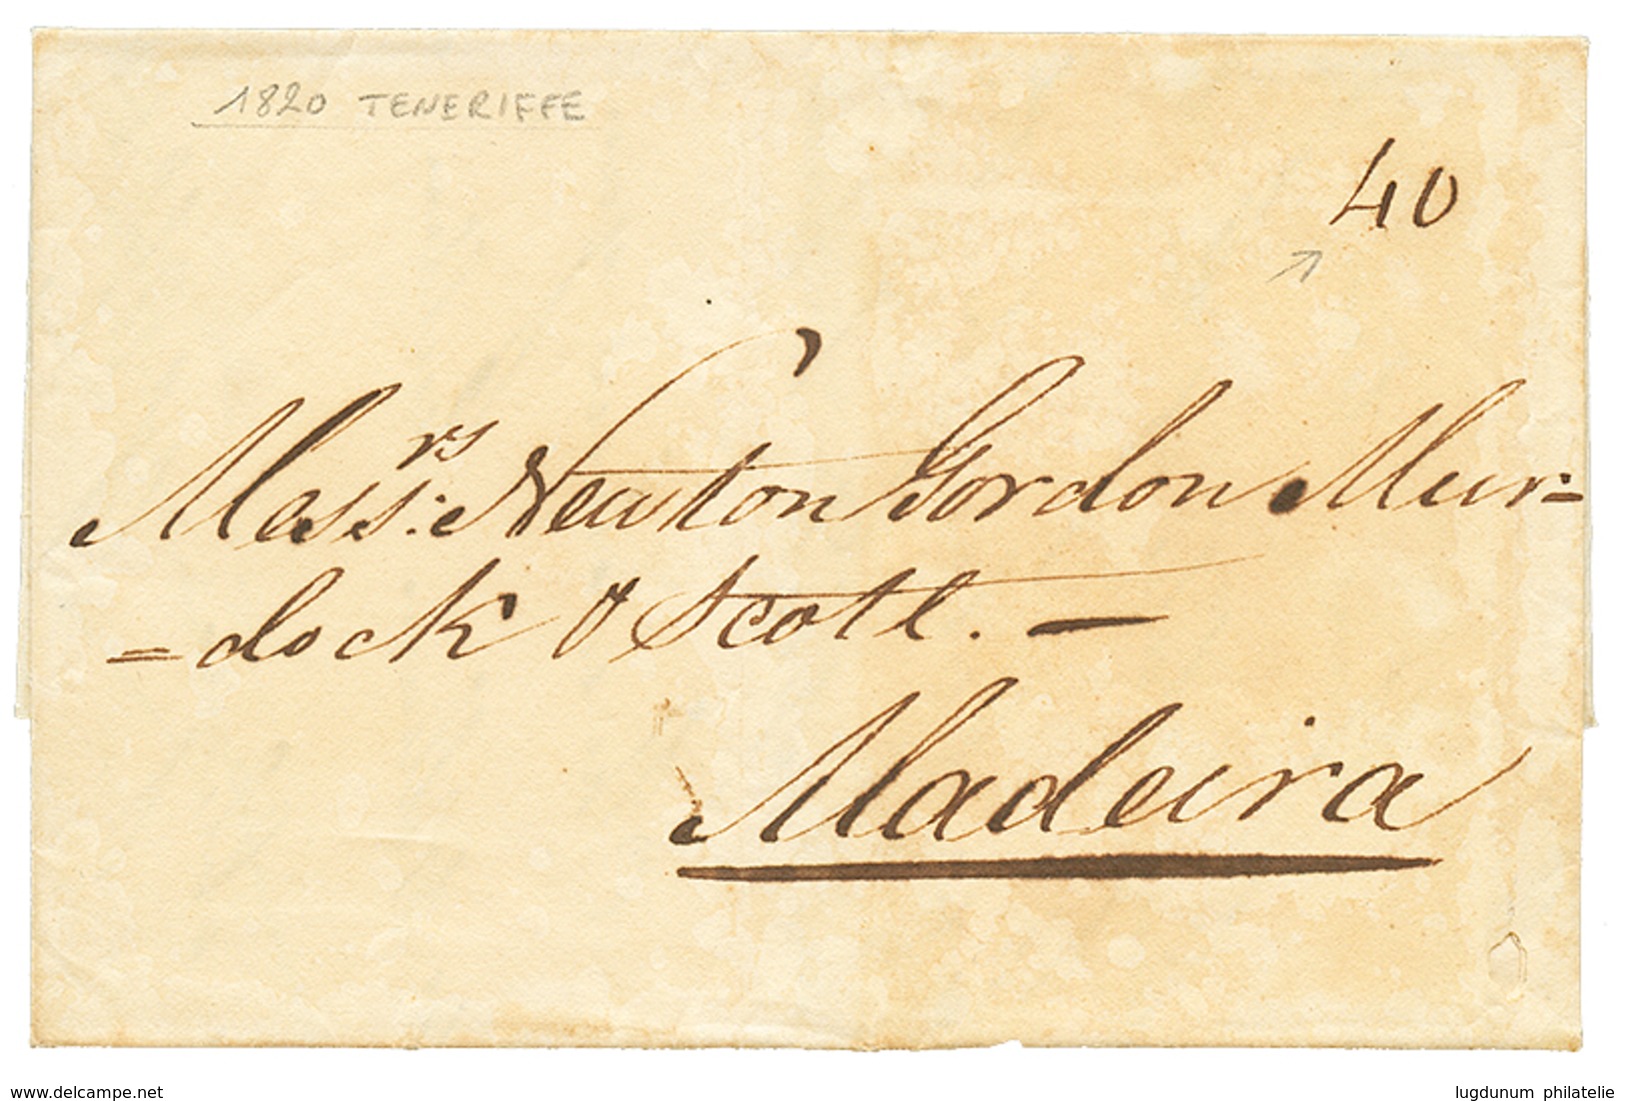 1820 TENERIFFE
40
Mess.rs Newton Gordon Mur=
=dock & Scott. —
Madeira
www.delcampe.net
lugdunum philatelie